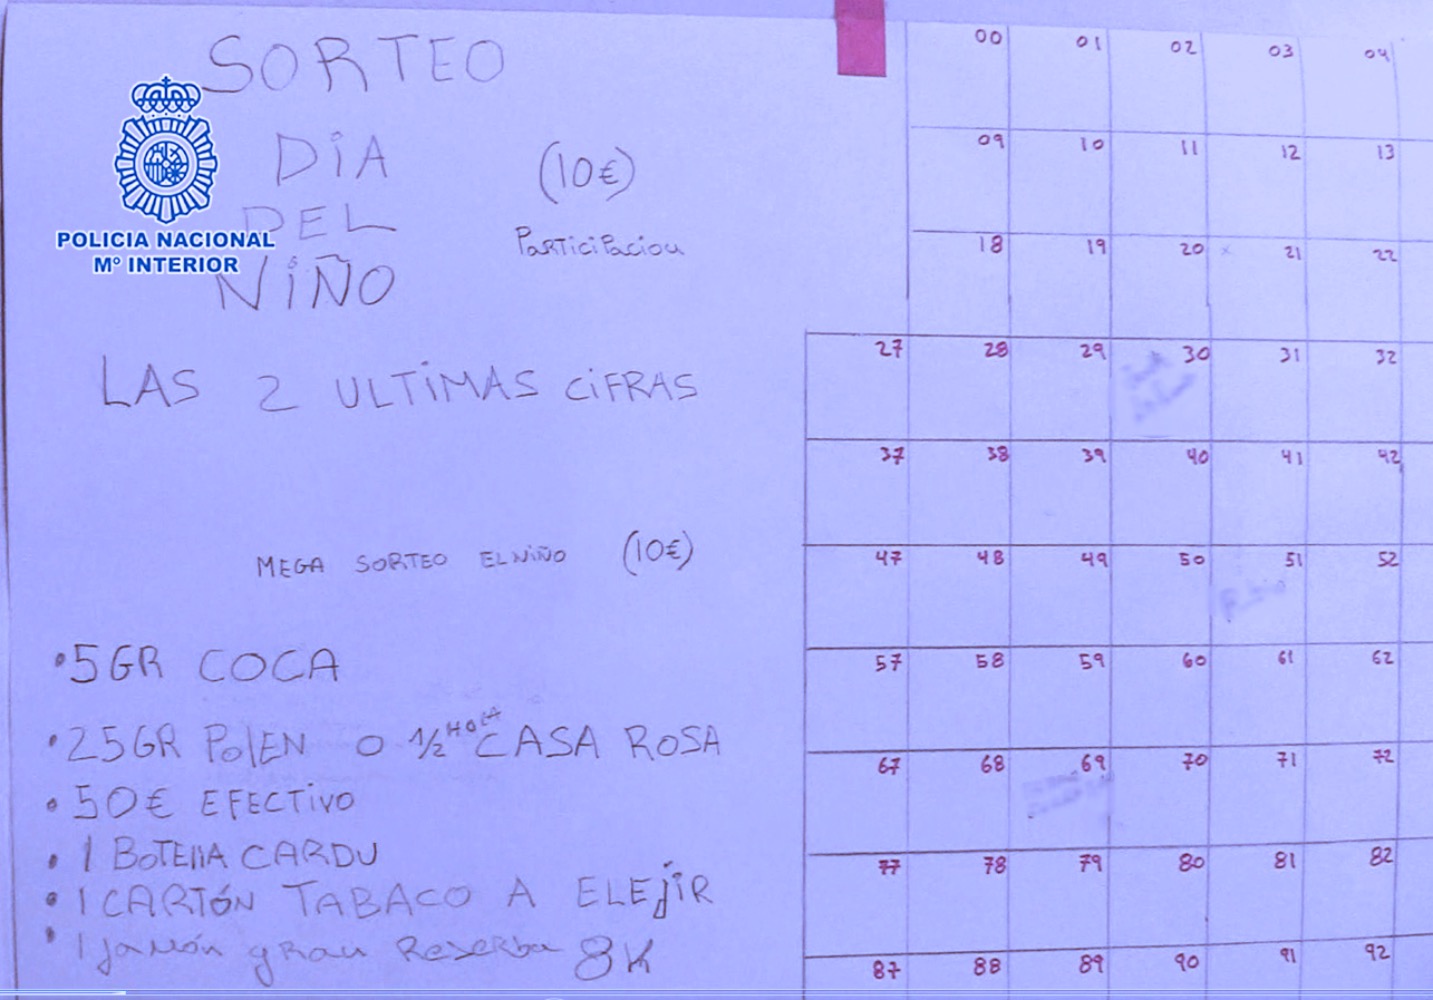 SORTEO
DiA
DEL
NiÑO
(10€)
ParTiciPacion
POLICIA NACIONAL
Mº INTERIOR
LAS 2 ULTiMAS CiFRAS
MEGA SORTEO EL NiÑO (10€)
•5GR COCA
•25GR PolEN O 1/2 HOJA CASA ROSA
•50€ EFECTiVO
•1 BOTEllA CARDU
•1 CARTÓN TABACO A ELEjiR
•1 jamón gran Reserba 8K
00 01 02 03 04
09 10 11 12 13
18 19 20 x 21 22
27 28 29 30 31 32
37 38 39 40 41 42
47 48 49 50 51 52
57 58 59 60 61 62
67 68 69 70 71 72
77 78 79 80 81 82
87 88 89 90 91 92